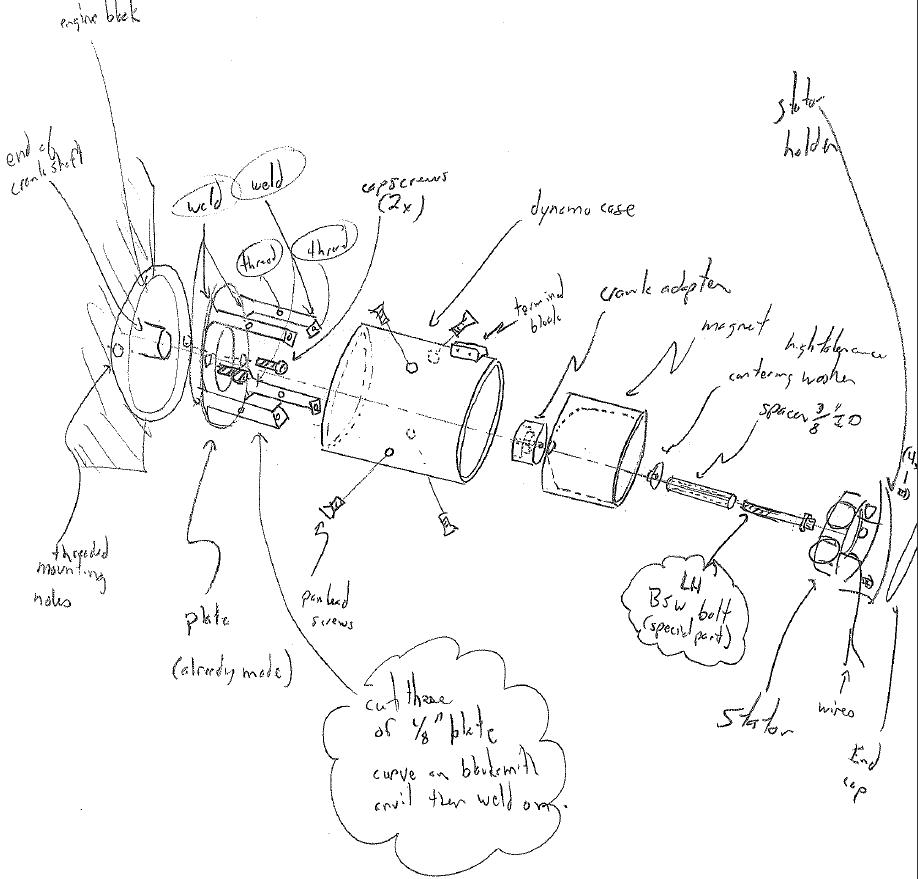 engine block
stator
holder
end of
crankshaft
weld
weld
capscrews
(2x)
thread
thread
dynamo case
terminal
block
crank adapter
magnet
high tolerance
centering washer
spacer 3/8" ID
threaded
mounting
holes
plate
(already made)
panhead
screws
LH
BSW bolt
(special part)
stator
wires
End
cap
cut these
of 1/8" plate
curve on blacksmith
anvil then weld on.